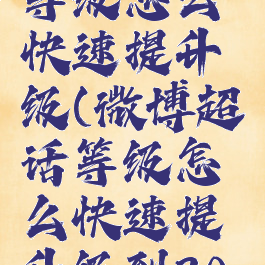 等级怎么
快速提升
级(微博超
话等级怎
么快速提
升级到10